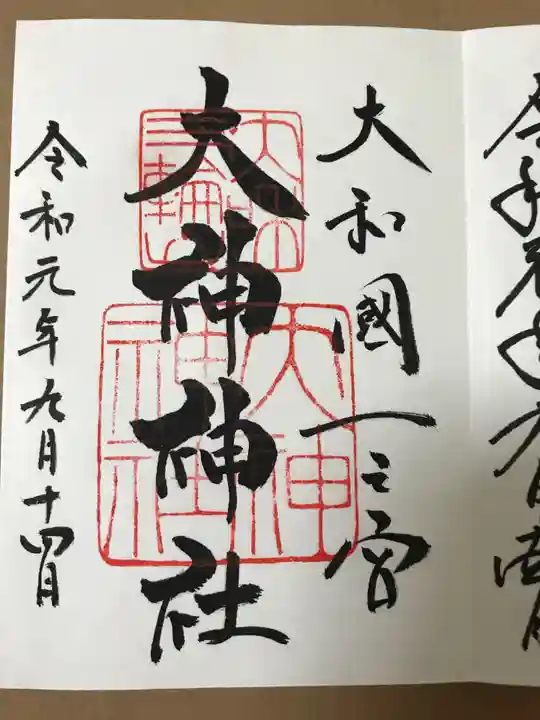 大和國一之宮
大神神社
令和元年九月十四日
三輪
大神
神社